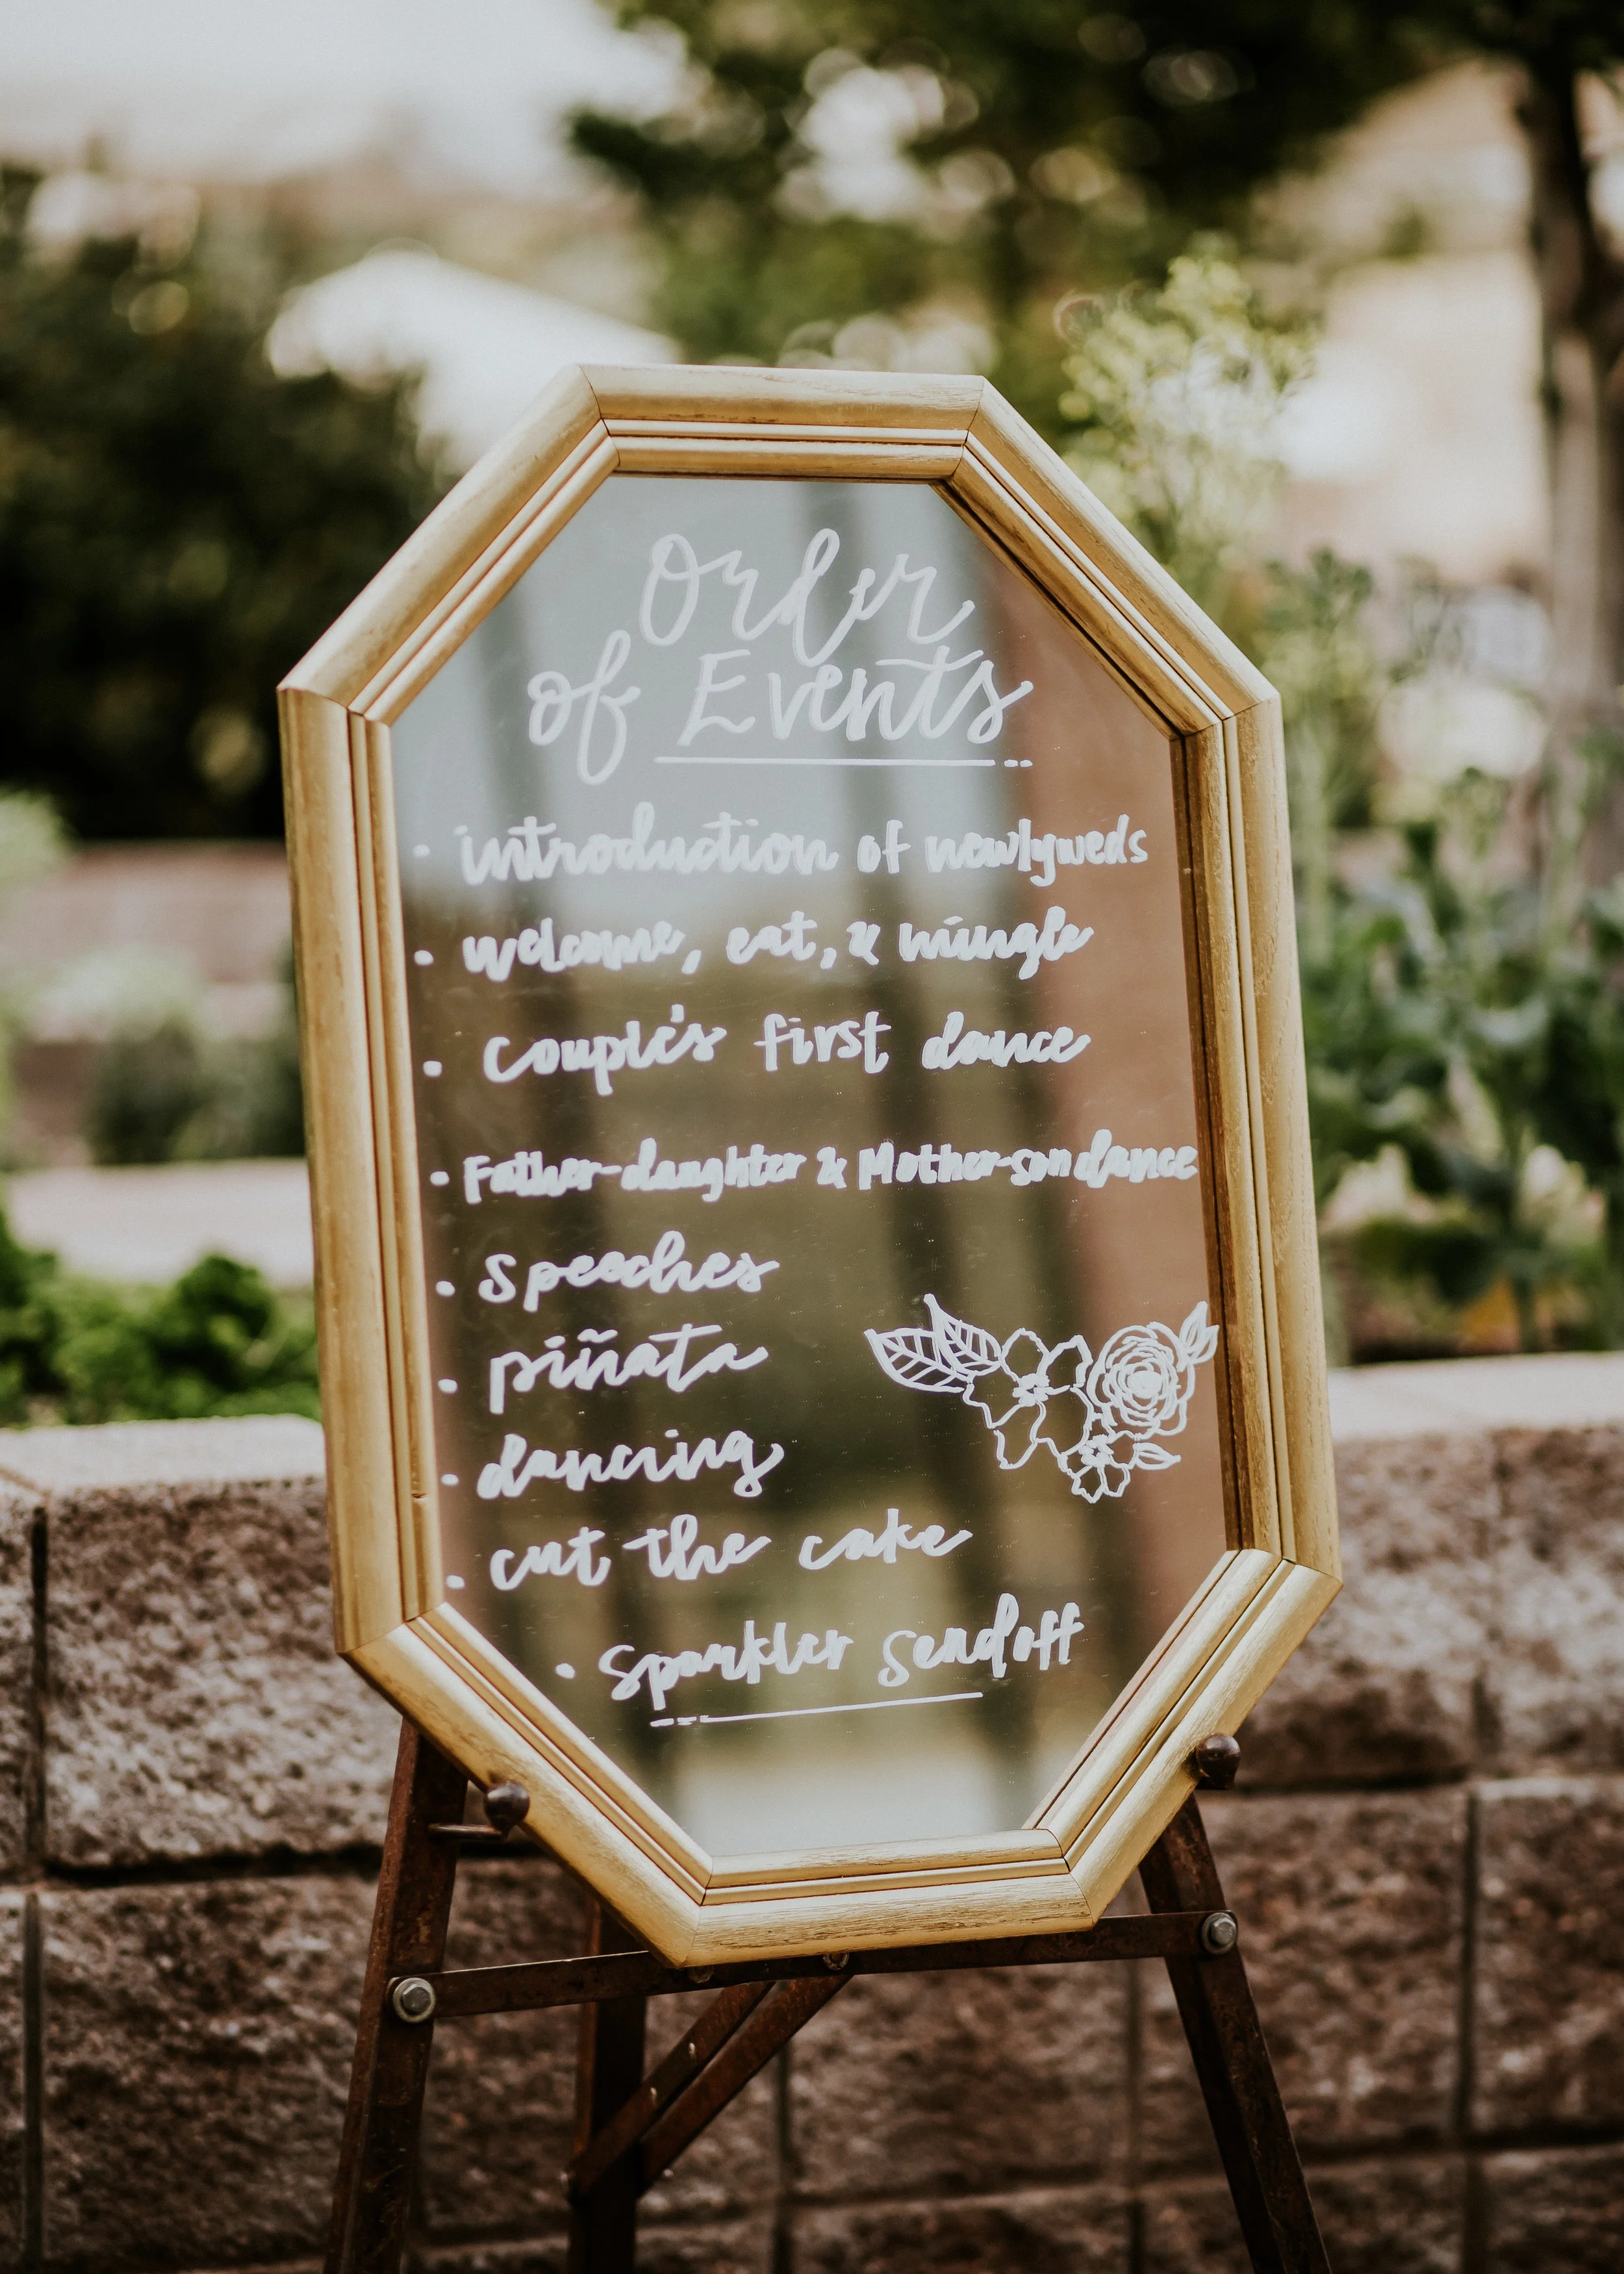 Order
of Events
· introduction of newlyweds
· welcome, eat, & mingle
· couple's first dance
· Father-daughter & Mother-son dance
· speeches
· piñata
· dancing
· cut the cake
· Sparkler Sendoff